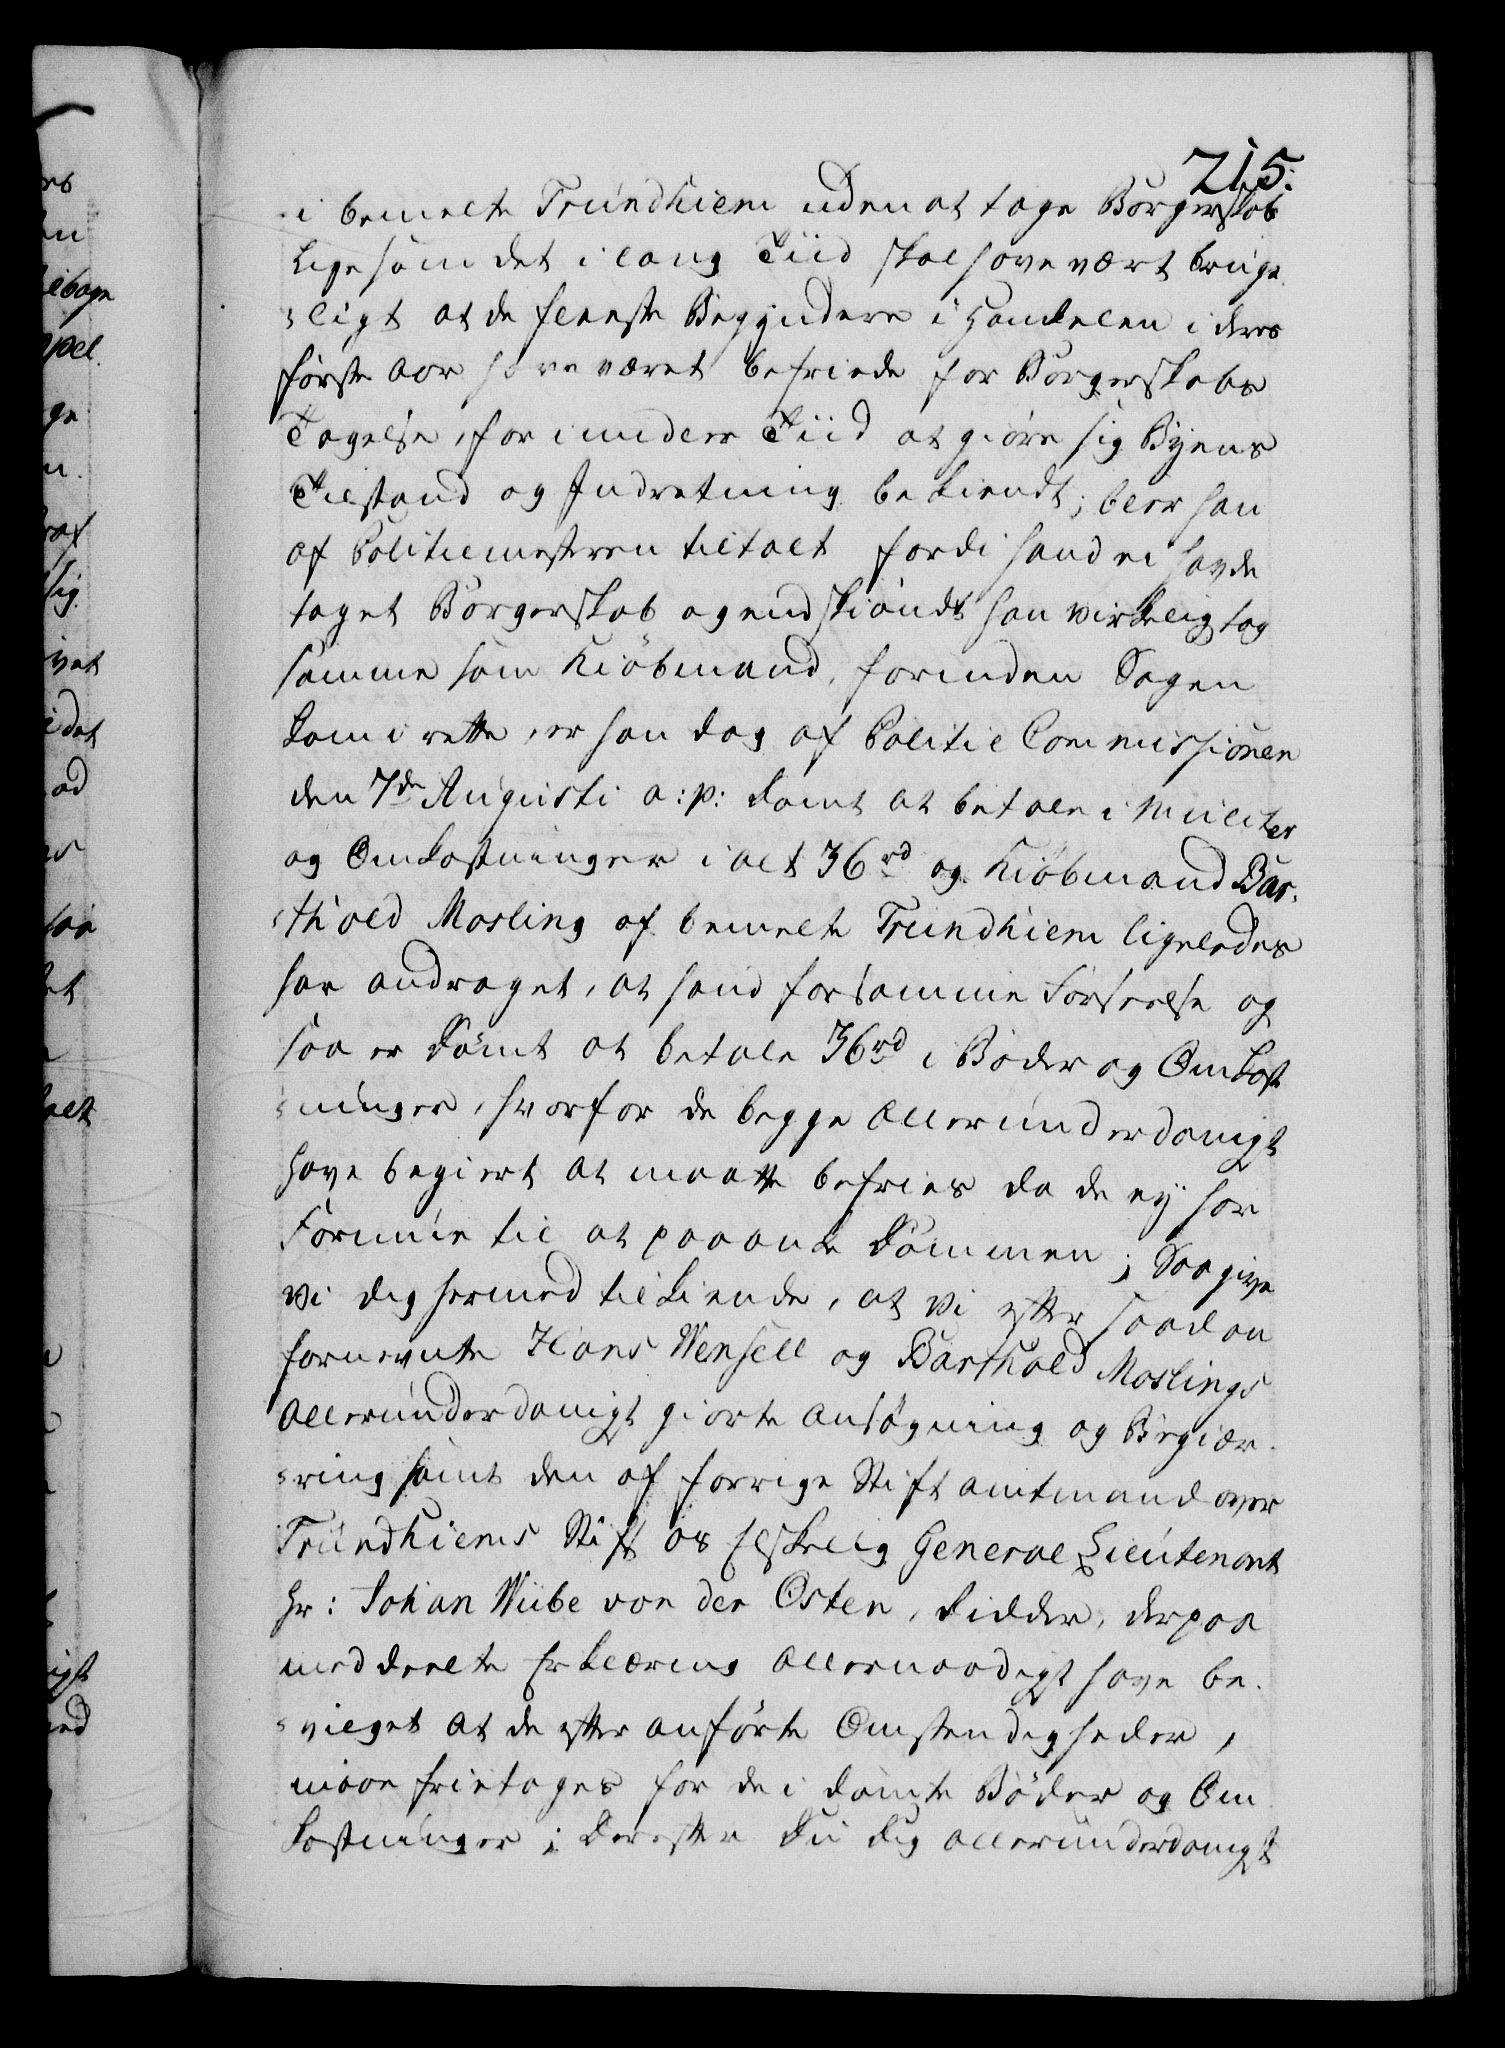 215.
i bemelte Trundhiem uden at tage Borgerskab
Ligesom det i lang Tiid skal have vært bruge
ligt at de fleeste Begyndere i Handelen i deres
første Aar have været befriede for Borgerskabs
Tagelse, for imidler Tiid at giøre sig Byens
Tilstand og Indretning bekiendt; blev han
af Politiemesteren tiltalt fordi hand ei havde
taget Borgerskab og endskiøndt han virkelig tog
samme som Kiøbmand, forinden Sagen
kom i rette, er han dog af Politie Commissionen
den 7de Augusti a: p: dømt at betale i Mulcter
og Omkostninger i alt 36rd og Kiøbmand Bar-
thold Mosling af bemelte Trundhiem ligeledes
har andraget, at hand for samme Forseelse og
saa er dømt at betale 36rd i Bøder og Omkost
ninger, hvorfor de begge allerunderdanigst
have begiert at maatte befries da de ey har
Formue til at paaanke Dommen; Saa give
Vi dig hermed tilkiende, at Vi efter saadan
fornevnte Hans Wensell og Barthold Moslings
allerunderdanigst giorte Ansøgning og Begiæ-
ring samt den af forrige Stiftamtmand over
Trundhiems Stift os Elskelig General Lieutenant
Hr: Johan Wibe von der Osten, Ridder, derpaa
meddeelte Erklæring allernaadigst have be-
vilget at de efter anførte Omstendigheder,
maae frietages for de i dømte Bøder og Om
kostninger; Derefter Du dig allerunderdanigst